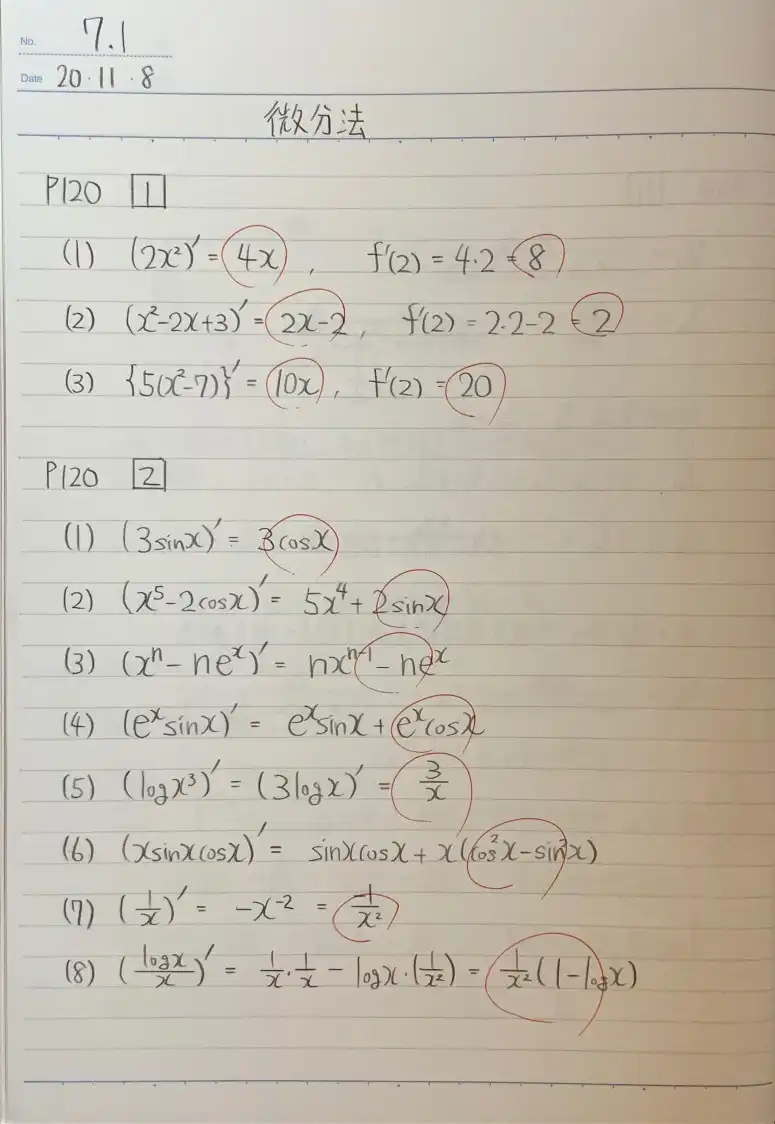 No. 7.1
Date 20·11·8
微分法
P120 1
(1) (2x²)′ = 4x , f′(2) = 4·2 = 8
(2) (x²-2x+3)′ = 2x-2 , f′(2) = 2·2-2 = 2
(3) {5(x²-7)}′ = 10x , f′(2) = 20
P120 2
(1) (3sinx)′ = 3cosx
(2) (x⁵-2cosx)′ = 5x⁴+2sinx
(3) (xⁿ-neˣ)′ = nxⁿ⁻¹-neˣ
(4) (eˣsinx)′ = eˣsinx+eˣcosx
(5) (logx³)′ = (3logx)′ = 3/x
(6) (xsinxcosx)′ = sinxcosx+x(cos²x-sin²x)
(7) (1/x)′ = -x⁻² = -1/x²
(8) (logx/x)′ = 1/x·1/x - logx·(1/x²) = 1/x²(1-logx)